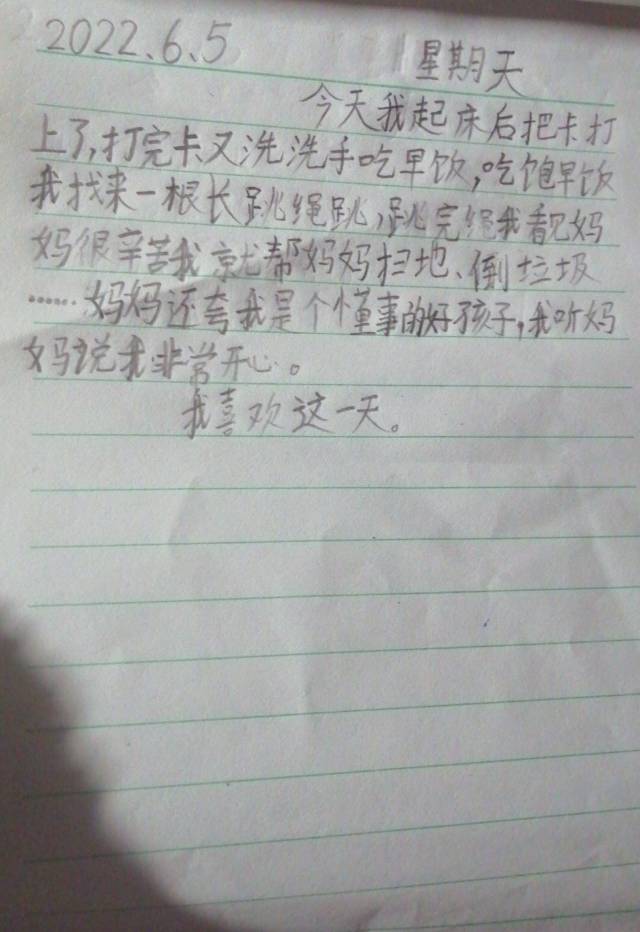 2022.6.5 星期天
今天我起床后把卡打
上了,打完卡又洗洗手吃早饭,吃饱早饭
我找来一根长跳绳跳,跳完绳我看见妈
妈很辛苦我就帮妈妈扫地、倒垃圾
……妈妈还夸我是个懂事的好孩子,我听妈
妈说我非常开心。
我喜欢这一天。